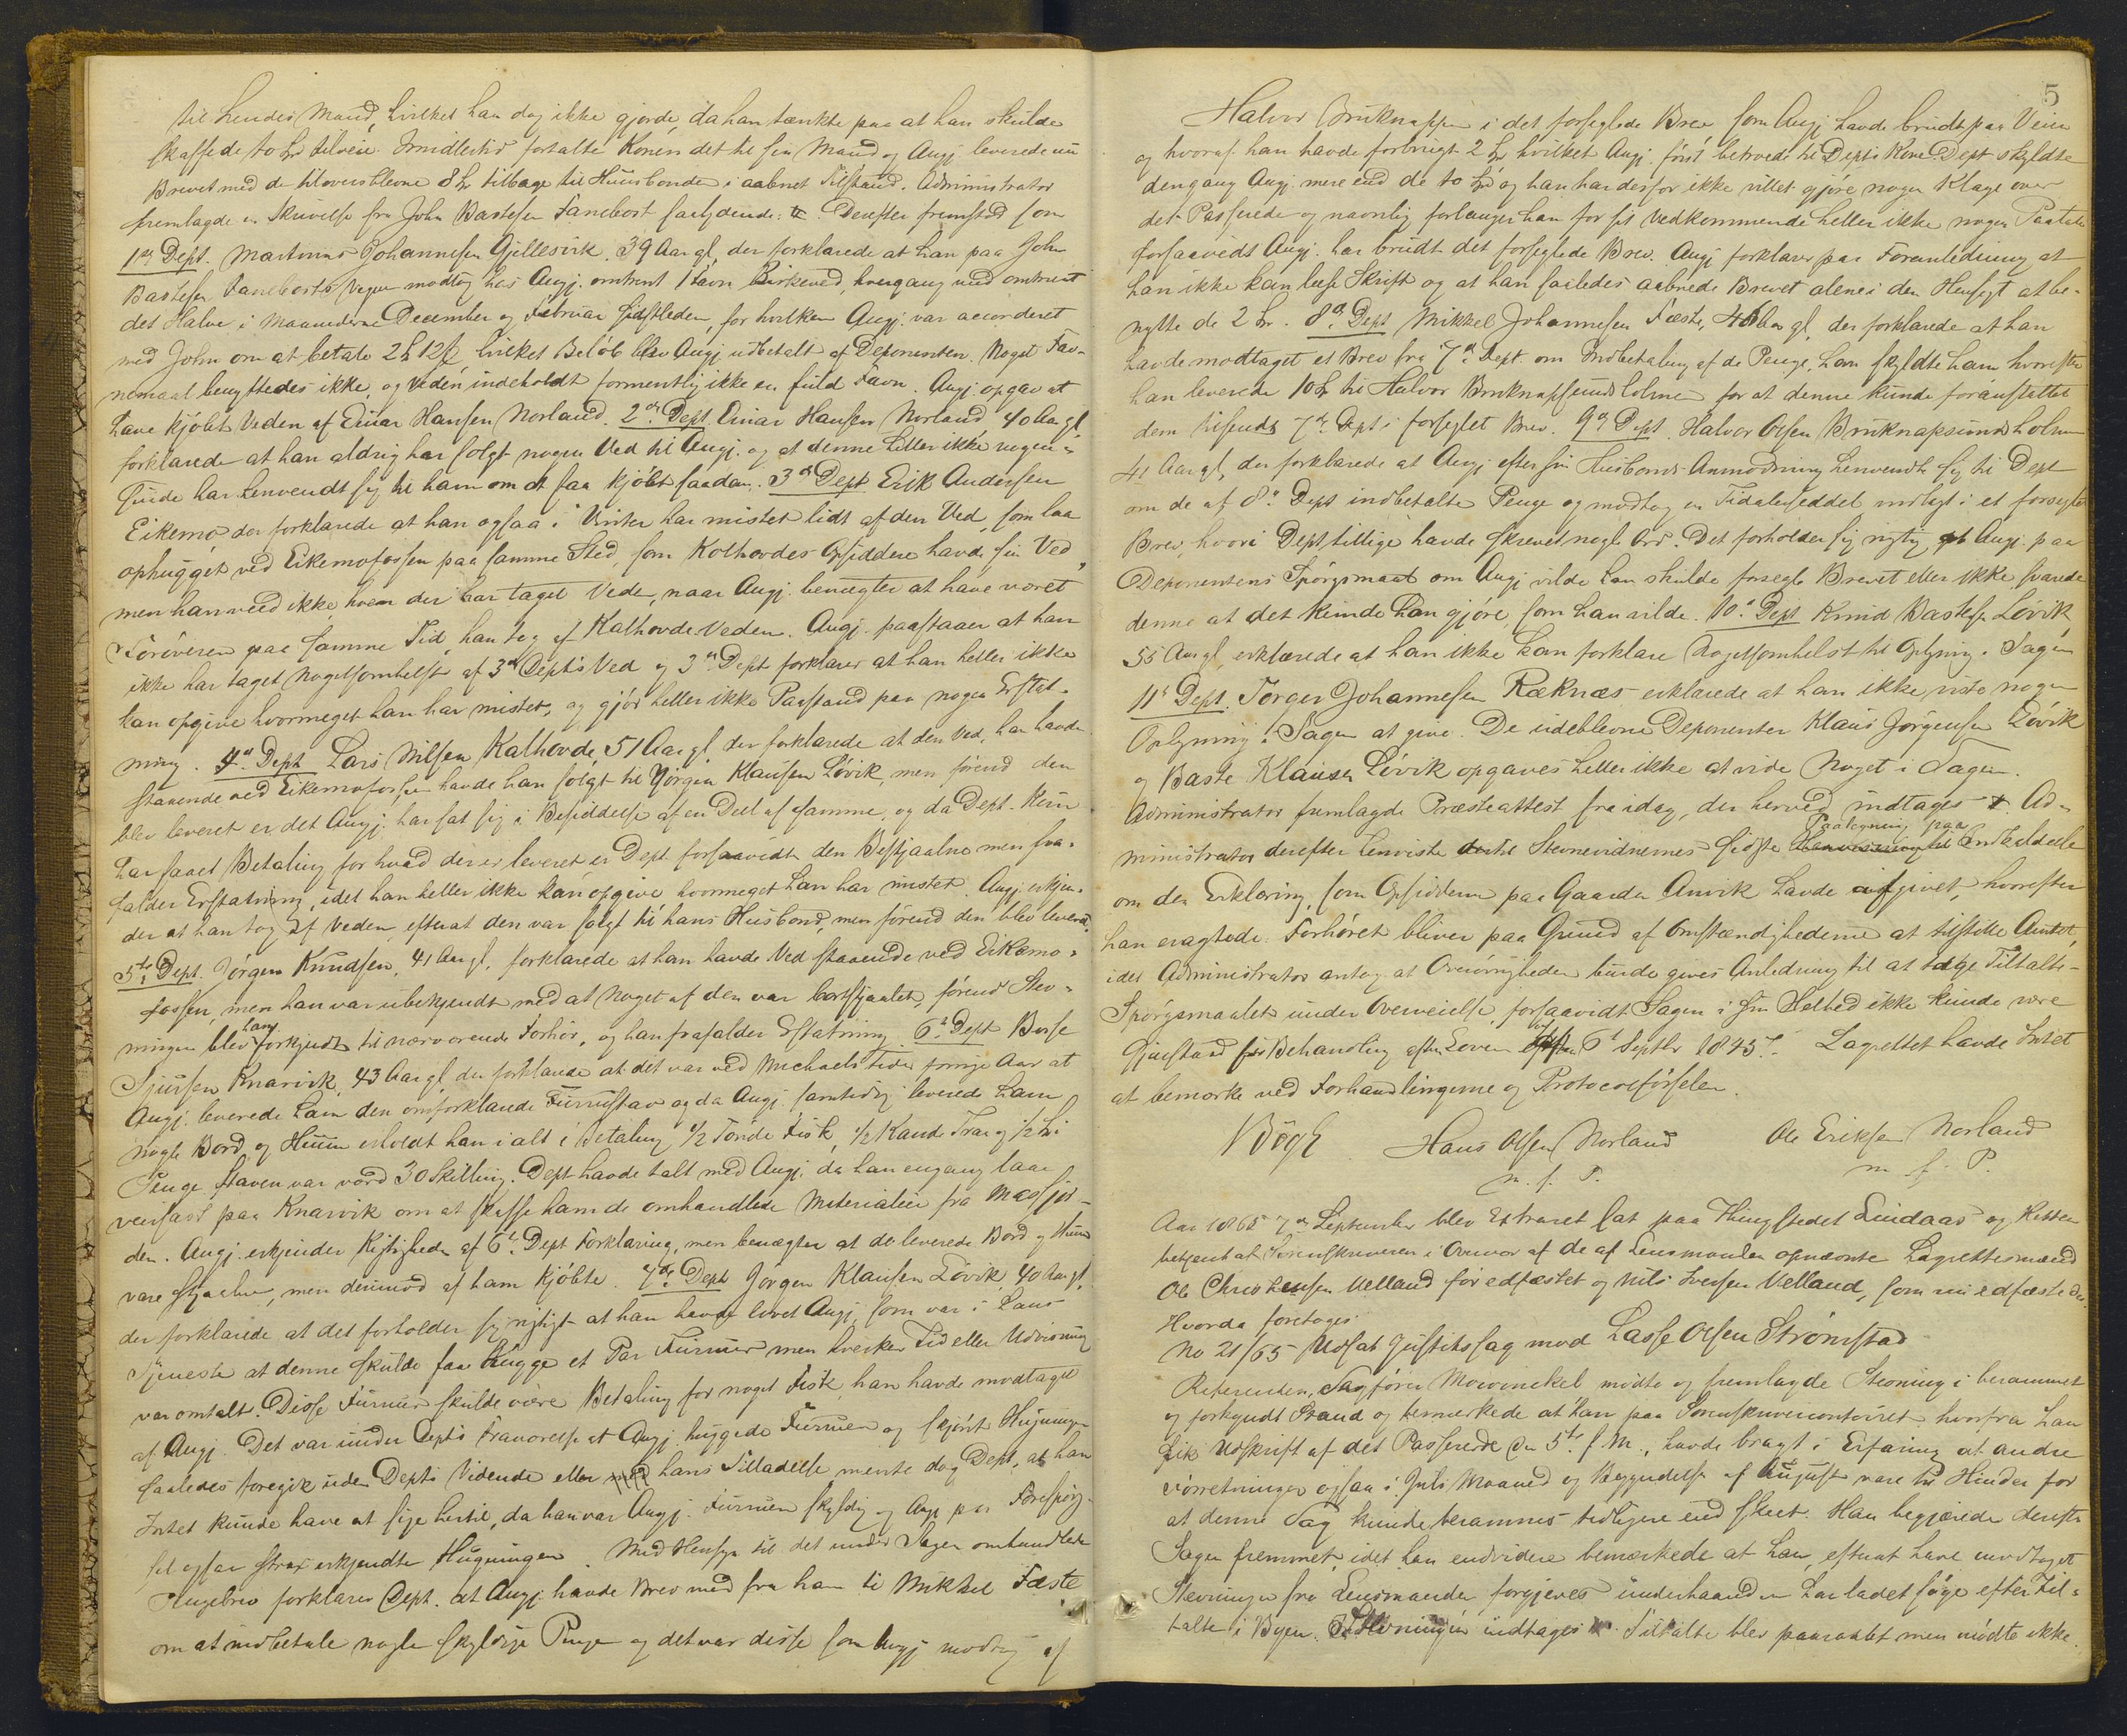 til hendes Mand, hvilket han dog ikke gjorde, da han tænkte paa at han skulde
skaffe de to Ort tilveie. Imidlertid fortalte Konen det til sin Mand og Angj. leverede nu
Brevet med de tiloversblevne 8 Ort tilbage til Huusbonden i aabnet Tilstand. Administrator
fremlagde en Skrivelse fra John Bastesen Fanebost saalydende: Derefter fremstod som
1ste Dept. Martinus Johannesen Gjellesvik, 39 Aar gl, der forklarede at han paa John
Bastesen Fanebosts Vegne modtog hos Angj. omtrent 1 Favn Birkeved, hvergang med omtrent
det Halve i Maanederne December og Februar sidstleden, for hvilken Angj. var accorderet
med John om at betale 2 Ort 12 s hvilket Beløb blev Angj. udbetalt af Deponenten. Noget Fav-
nemaal benyttedes ikke, og Veden indeholdt formentlig ikke en fuld Favn. Angj. opgav at
have kjøbt Veden af Einar Hansen Norland. 2den Dept. Einar Hansen Norland, 40 Aar gl,
forklarede at han aldrig har solgt nogen Ved til Angj. og at denne heller ikke nogen-
sinde har henvendt sig til ham om at faa kjøbt saadan. 3die Dept Erik Andersen
Eikemo der forklarede at han ogsaa i Vinter har mistet lidt af den Ved, som laa
ophugget ved Eikemofossen paa samme Sted, som Kolhovdes Opsiddere havde sin Ved,
men han veed ikke hvem der har taget Veden, naar Angj. benegter at have været
Tørøveren paa samme Tid han tog af Kalhovde-Veden. Angj. paastaaer at han
ikke har taget Nogetsomhelst af 3die Depts Ved og 3die Dept forklarer at han heller ikke
kan opgive hvormeget han har mistet, og gjør heller ikke Paastand paa nogen Erstat-
ning. 4de Dept Lars Nilsen Kalhovde, 51 Aar gl, der forklarede at den Ved, han havde
staaende ved Eikemofossen havde han solgt til Jørgen Klausen Løvik, men førend den
blev leveret er det Angj. har sat sig i Besiddelse af en Deel af samme, og da Dept. kun
har faaet Betaling for hvad der er leveret er Dept forsaavidt den Bestjaalne men fra-
falder Erstatning, idet han heller ikke kan opgive hvormeget han har mistet. Angj. erkjen-
der at han tog af Veden efterat den var solgt til hans Husbond, men førend den blev leveret.
5te Dept. Jørgen Knudsen, 41 Aar gl, forklarede at han havde Ved staaende ved Eikemo-
fossen, men han var ubekjendt med at Noget af den var bortstjaalet, førend Stev-
ningen blev ham forkyndt til nærværende Forhør, og han frafalder Erstatning. 6te Dept Børse
Sjursen Knarvik, 43 Aar gl, der forklarede at det var ved Michaels Tider forrige Aar at
Angj. leverede ham den omforklarede Furrustav og da Angj. samtidig leverede ham
nogle Bord og Huun erholdt han i alt i Betaling 1/2 Tønde Fisk, 1/2 Kande Tran og 1/2 Ort i
Penge. Staven var værd 30 Skilling. Dept havde talt med Angj. da han engang laae
veirfast paa Knarvik om at skaffe ham de omhandlede Materialier fra Masfjor-
den. Angj. erkjender Rigtigheden af 6te Dept Forklaring, men benægter at de leverede Bord og Huun
vare stjaalne, men derimod af ham kjøbte. 7de Dept Jørgen Klausen Løvik, 40 Aar gl,
der forklarede at det forholder sig rigtigt at han havde lovet Angj., som var i hans
Tjeneste at denne skulde faae hugge et Par Furruer men hverken Tid eller Udviisning
var omtalt. Disse Furruer skulde være Betaling for noget Fisk, han havde modtaget
af Angj. Det var under Depts Fraværelse at Angj. huggede Furruen og skjønt Hugningen
saaledes foregik uden Depts Vidende eller med hans Tilladelse mente dog Dept, at han
Intet kunde have at sige hertil, da han var Angj. Furruen skyldig og Angj. paa Forespørg-
sel ogsaa strax erkjendte Hugningen. Med Hensyn til det under Sagen omhandlede
Pengebrev forklarer Dept. at Angj. havde Brev med fra ham til Mikkel Fæste
om at indbetale nogle skyldige Penge og det var disse som Angj. modtog af
5
Halvor Bruknappen i det forseglede Brev som Angj. havde brudt paa Veien
og hvoraf han havde forbrugt 2 Ort, hvilket Angj. først betroede til Depts Kone. Dept skyldte
dengang Angj. mere end de to Ort og han har derfor ikke villet gjøre nogen Klage over
det Passerede og navnlig forlanger han for sit Vedkommende heller ikke nogen Paatale
forsaavidt Angj. har brudt det forseglede Brev. Angj. forklarer paa Foranledning at
han ikke kan læse Skrift og at han saaledes aabnede Brevet alene i den Hensigt at be-
nytte de 2 Ort. 8de Dept Mikkel Johannesen Fæste, 46 Aar gl, der forklarede at han
havde modtaget et Brev fra 7de Dept. om Indbetaling af de Penge, han skyldte ham hvorefter
han leverede 10 Ort til Halvor Bruknapsundholmen for at denne kunde foranstaltet
dem tilsendt 7de Dept i forseglet Brev. 9de Dept Halvor Olsen Bruknapsundholmen
41 Aar gl, der forklarede at Angj. efter sin Husbonds Anmodning henvendte sig til Dept
om de af 8de Dept indbetalte Penge og modtog en Fidalerseddel indlagt i et forseglet
Brev, hvori Dept tillige havde skrevet nogle Ord. Det forholder sig rigtig at Angj. paa
Deponentens Spørgsmaal om Angj. vilde han skulde forsegle Brevet eller ikke svarede
denne at det kunde han gjøre, som han vilde. 10de Dept Knud Bastesen Løvik
55 Aar gl, erklærede at han ikke kan forklare Nogetsomhelst til Oplysning i Sagen
11te Dept. Torger Johannesen Ræknæs erklærede at han ikke viste nogen
Oplysning i Sagen at give. De udeblevne Deponenter Klaus Jørgensen Løvik
og Baste Klausen Løvik opgaves heller ikke at vide Noget i Sagen.
Administrator fremlagde Præsteattest fra idag, der herved indtages. Ad-
ministrator derefter henviste til Stevnevidnernes sidste Paategning paa Indkaldelse
om den Erklæring, som Opsidderne paa Gaarden Anvik havde afgivet, hvorefter
han eragtede Forhøret bliver paa Grund af Omstændighederne at tilstille Amtet,
idet Administrator antog at Overøvrigheden burde gives Anledning til at tage Tiltalte-
Spørgsmaalet under Overveielse, forsaavidt Sagen i sin Helhed ikke kunde være
Gjenstand for Behandling efter Loven af 6te Septbr 1845. Lagrettet havde Intet
at bemærke ved Forhandlingerne og Protocolførselen.
Bøgh Hans Olsen Norland Ole Eriksen Norland
m. f. P. m. f. P.
Aar 1865 7de September blev Extraret sat paa Thingstedet Lindaas og Retten
betjent af Sorenskriveren i Overvær af de af Lensmanden opnævnte Lagrettesmænd
Ole Christensen Velland før edfæstet og Nils Iversen Velland, som nu edfæstedes.
Hvorda foretoges:
No 21/65 Udsat Justitssag mod Lasse Olsen Strømstad
Referenten, Sagfører Mowinckel mødte og fremlagde Stevning i berammet
og forkyndt Stand og bemærkede at han paa Sorenskrivercontoiret hvorfra han
fik Udskrift af det Passerede den 5te f. M., havde bragt i Erfaring at andre
Forretninger ogsaa i Juli Maaned og Begyndelsen af August vare til Hinder for
at denne Sag kunde berammes tidligere end skeet. Han begjærede derefter
Sagen fremmet, idet han endvidere bemærkede at han, efterat have modtaget
Stævningen fra Lensmanden, forgjæves underhaanden har ladet søge efter Til-
talte i Byen. Stevningen indtages. Tiltalte blev paaraabt men mødte ikke.